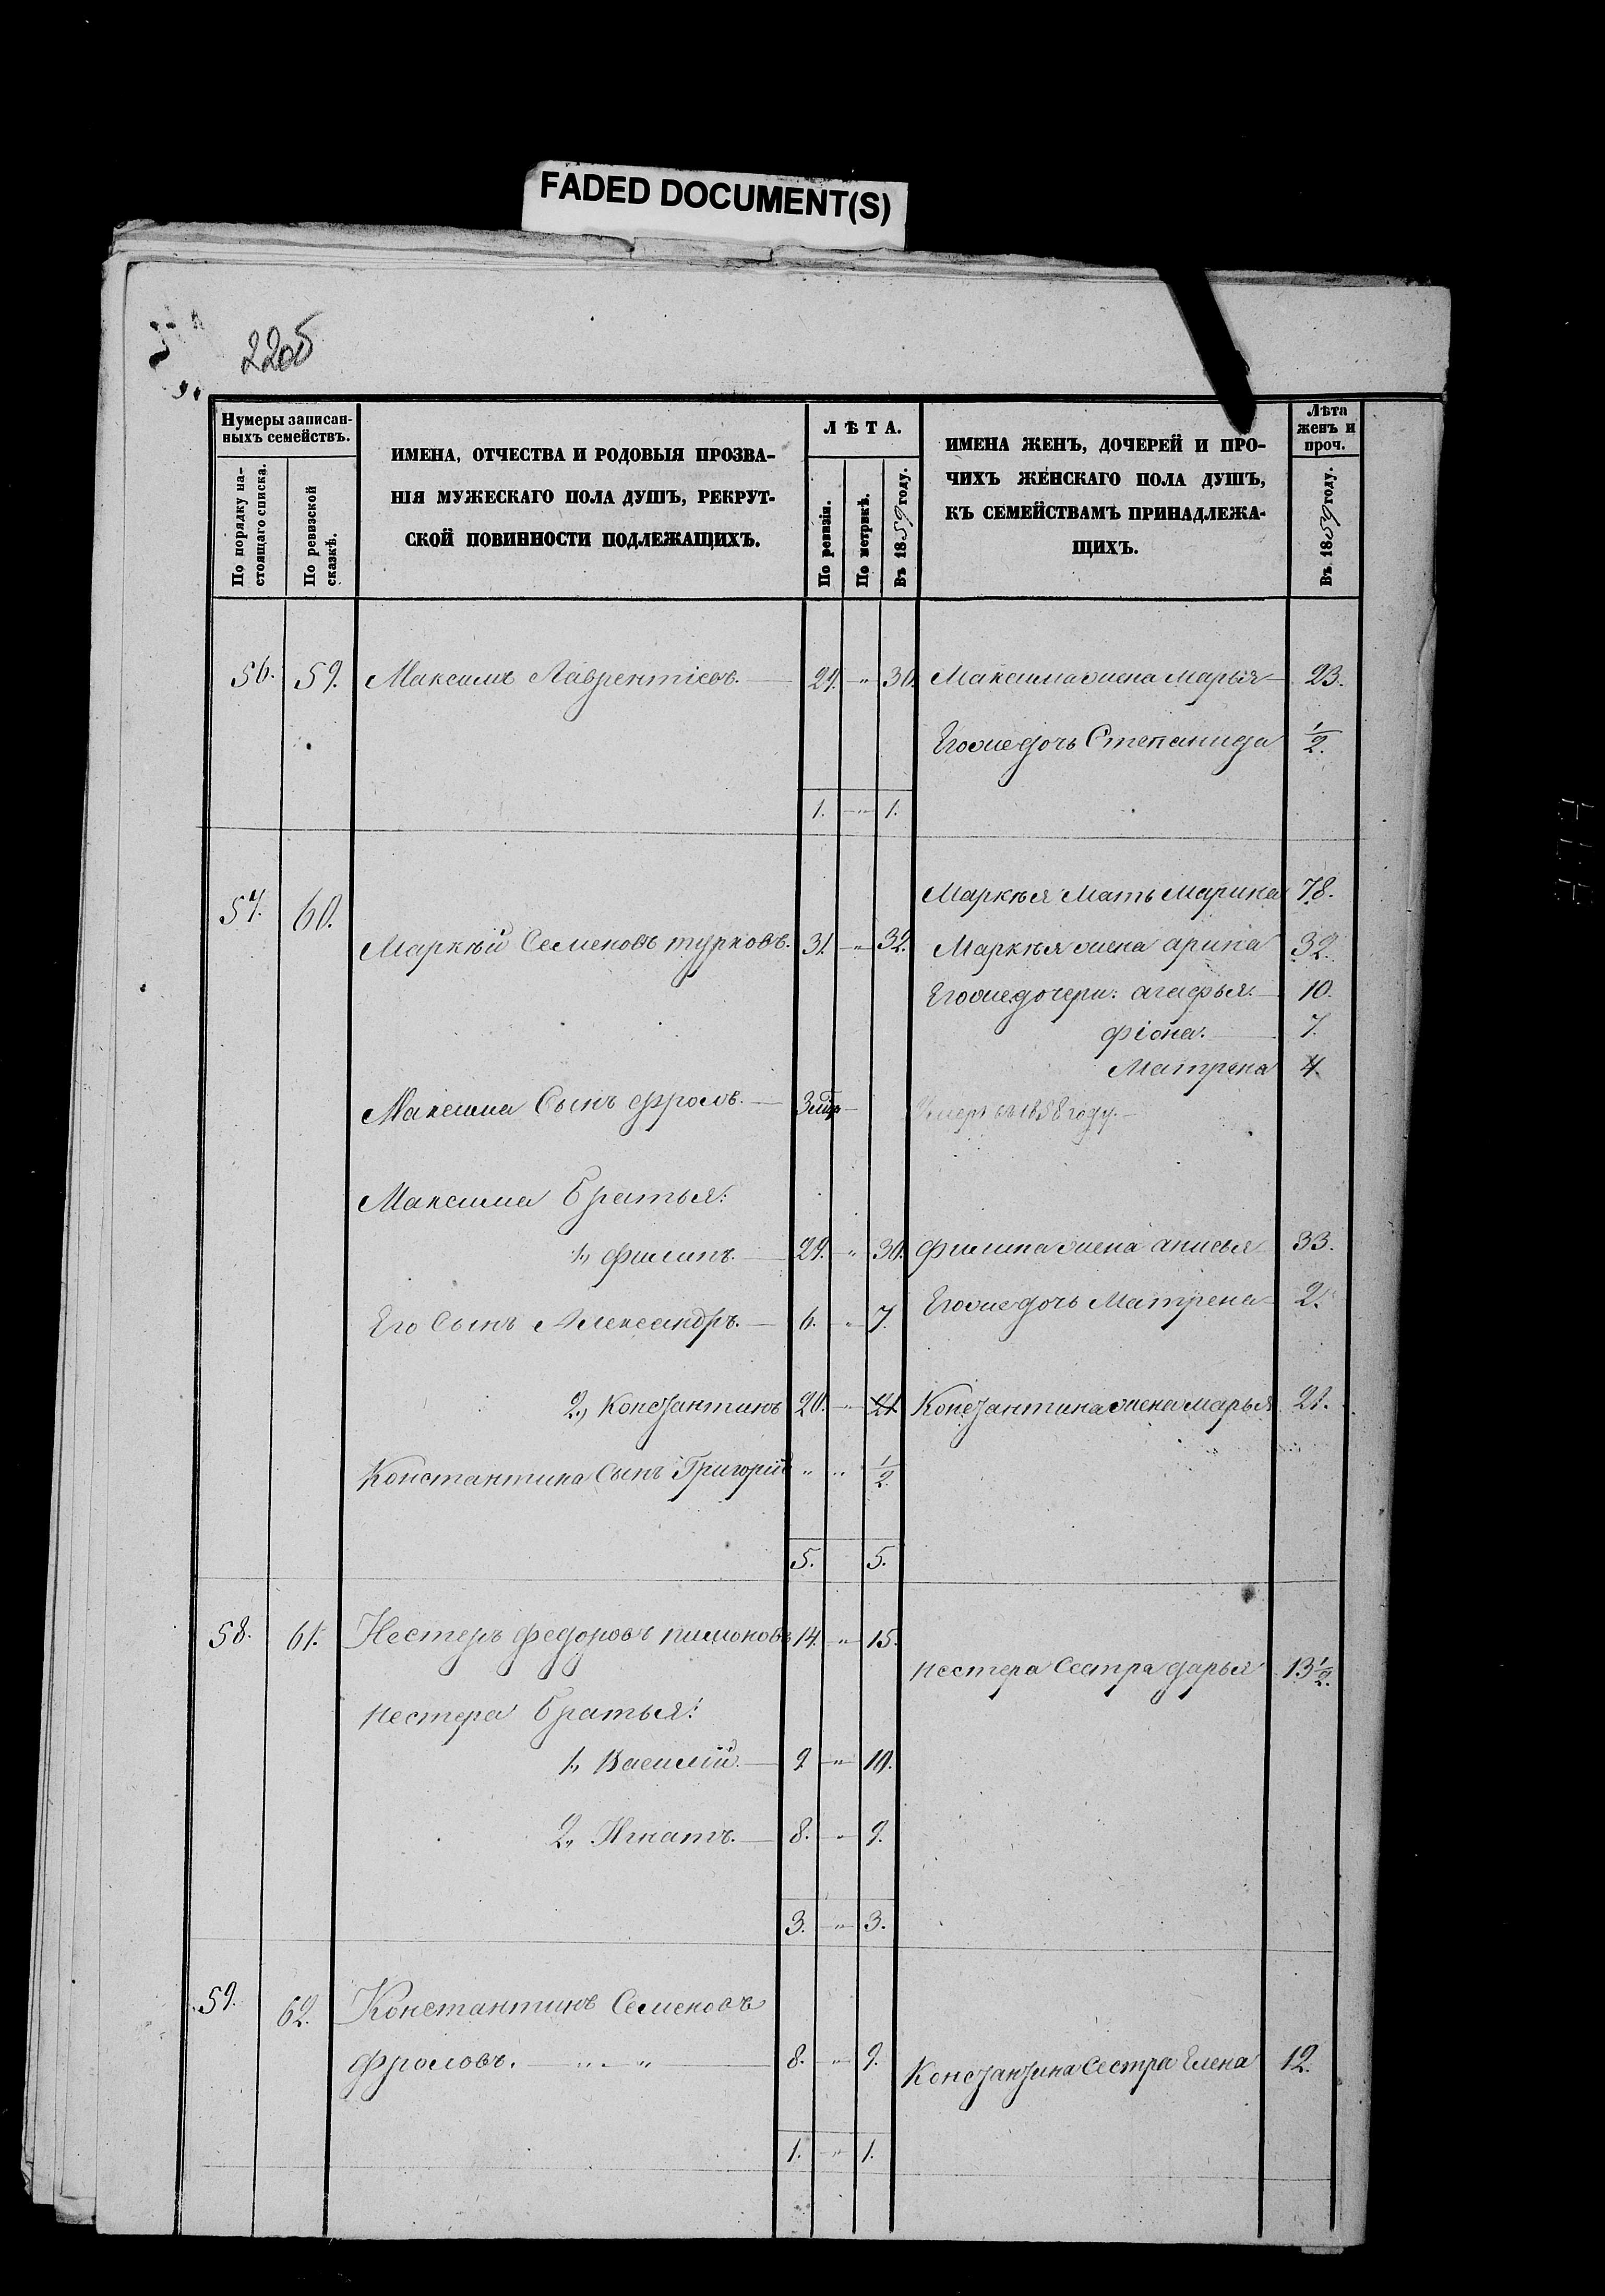 FADED DOCUMENT(S)
220б
Нумеры записан-
ныхъ семействъ.
По порядку на-
стоящаго списка.
По ревизской
сказкѣ.
ИМЕНА, ОТЧЕСТВА И РОДОВЫЯ ПРОЗВА-
НІЯ МУЖЕСКАГО ПОЛА ДУШЪ, РЕКРУТ-
СКОЙ ПОВИННОСТИ ПОДЛЕЖАЩИХЪ.
ЛѢТА.
По ревизіи.
По метрикѣ.
Въ 1859 году.
ИМЕНА ЖЕНЪ, ДОЧЕРЕЙ И ПРО-
ЧИХЪ ЖЕНСКАГО ПОЛА ДУШЪ,
КЪ СЕМЕЙСТВАМЪ ПРИНАДЛЕЖА-
ЩИХЪ.
Лѣта
женъ и
проч.
Въ 1859 году.
56. 59. Максимъ Лаврентіевъ. 29. „ 30. Максима жена марья 23.
Его же дочь Степанида 1/2.
1. „ 1.
Маркѣя Мать Марина 78.
57. 60.
Маркѣй Семеновъ турковъ. 31. „ 32. Маркѣя жена арина 32.
Его же дочери: агафья. 10.
фіона. 7.
Матрена 4.
Максима Сынъ фролъ. Умеръ въ 1858 году.
Максима Братья:
1., филипъ. 29. „ 30. филипа жена анисья 33.
Его Сынъ Александръ. 6. „ 7. Его же дочь Матрена 2.
2., Константинъ 20. „ 21. Константина жена марья 21.
Константина Сынъ Григорій „ „ 1/2.
5. 5.
58. 61. Нестеръ федоровъ пимоновъ 14. „ 15.
нестера Сестра дарья 13 1/2.
нестера Братья:
1., Василій. 9. „ 10.
2., Игнатъ. 8. „ 9.
3. „ 3.
59. 62. Константинъ Семеновъ
фроловъ. „ „ 8. „ 9. Константина Сестра Елена 12.
1. „ 1.